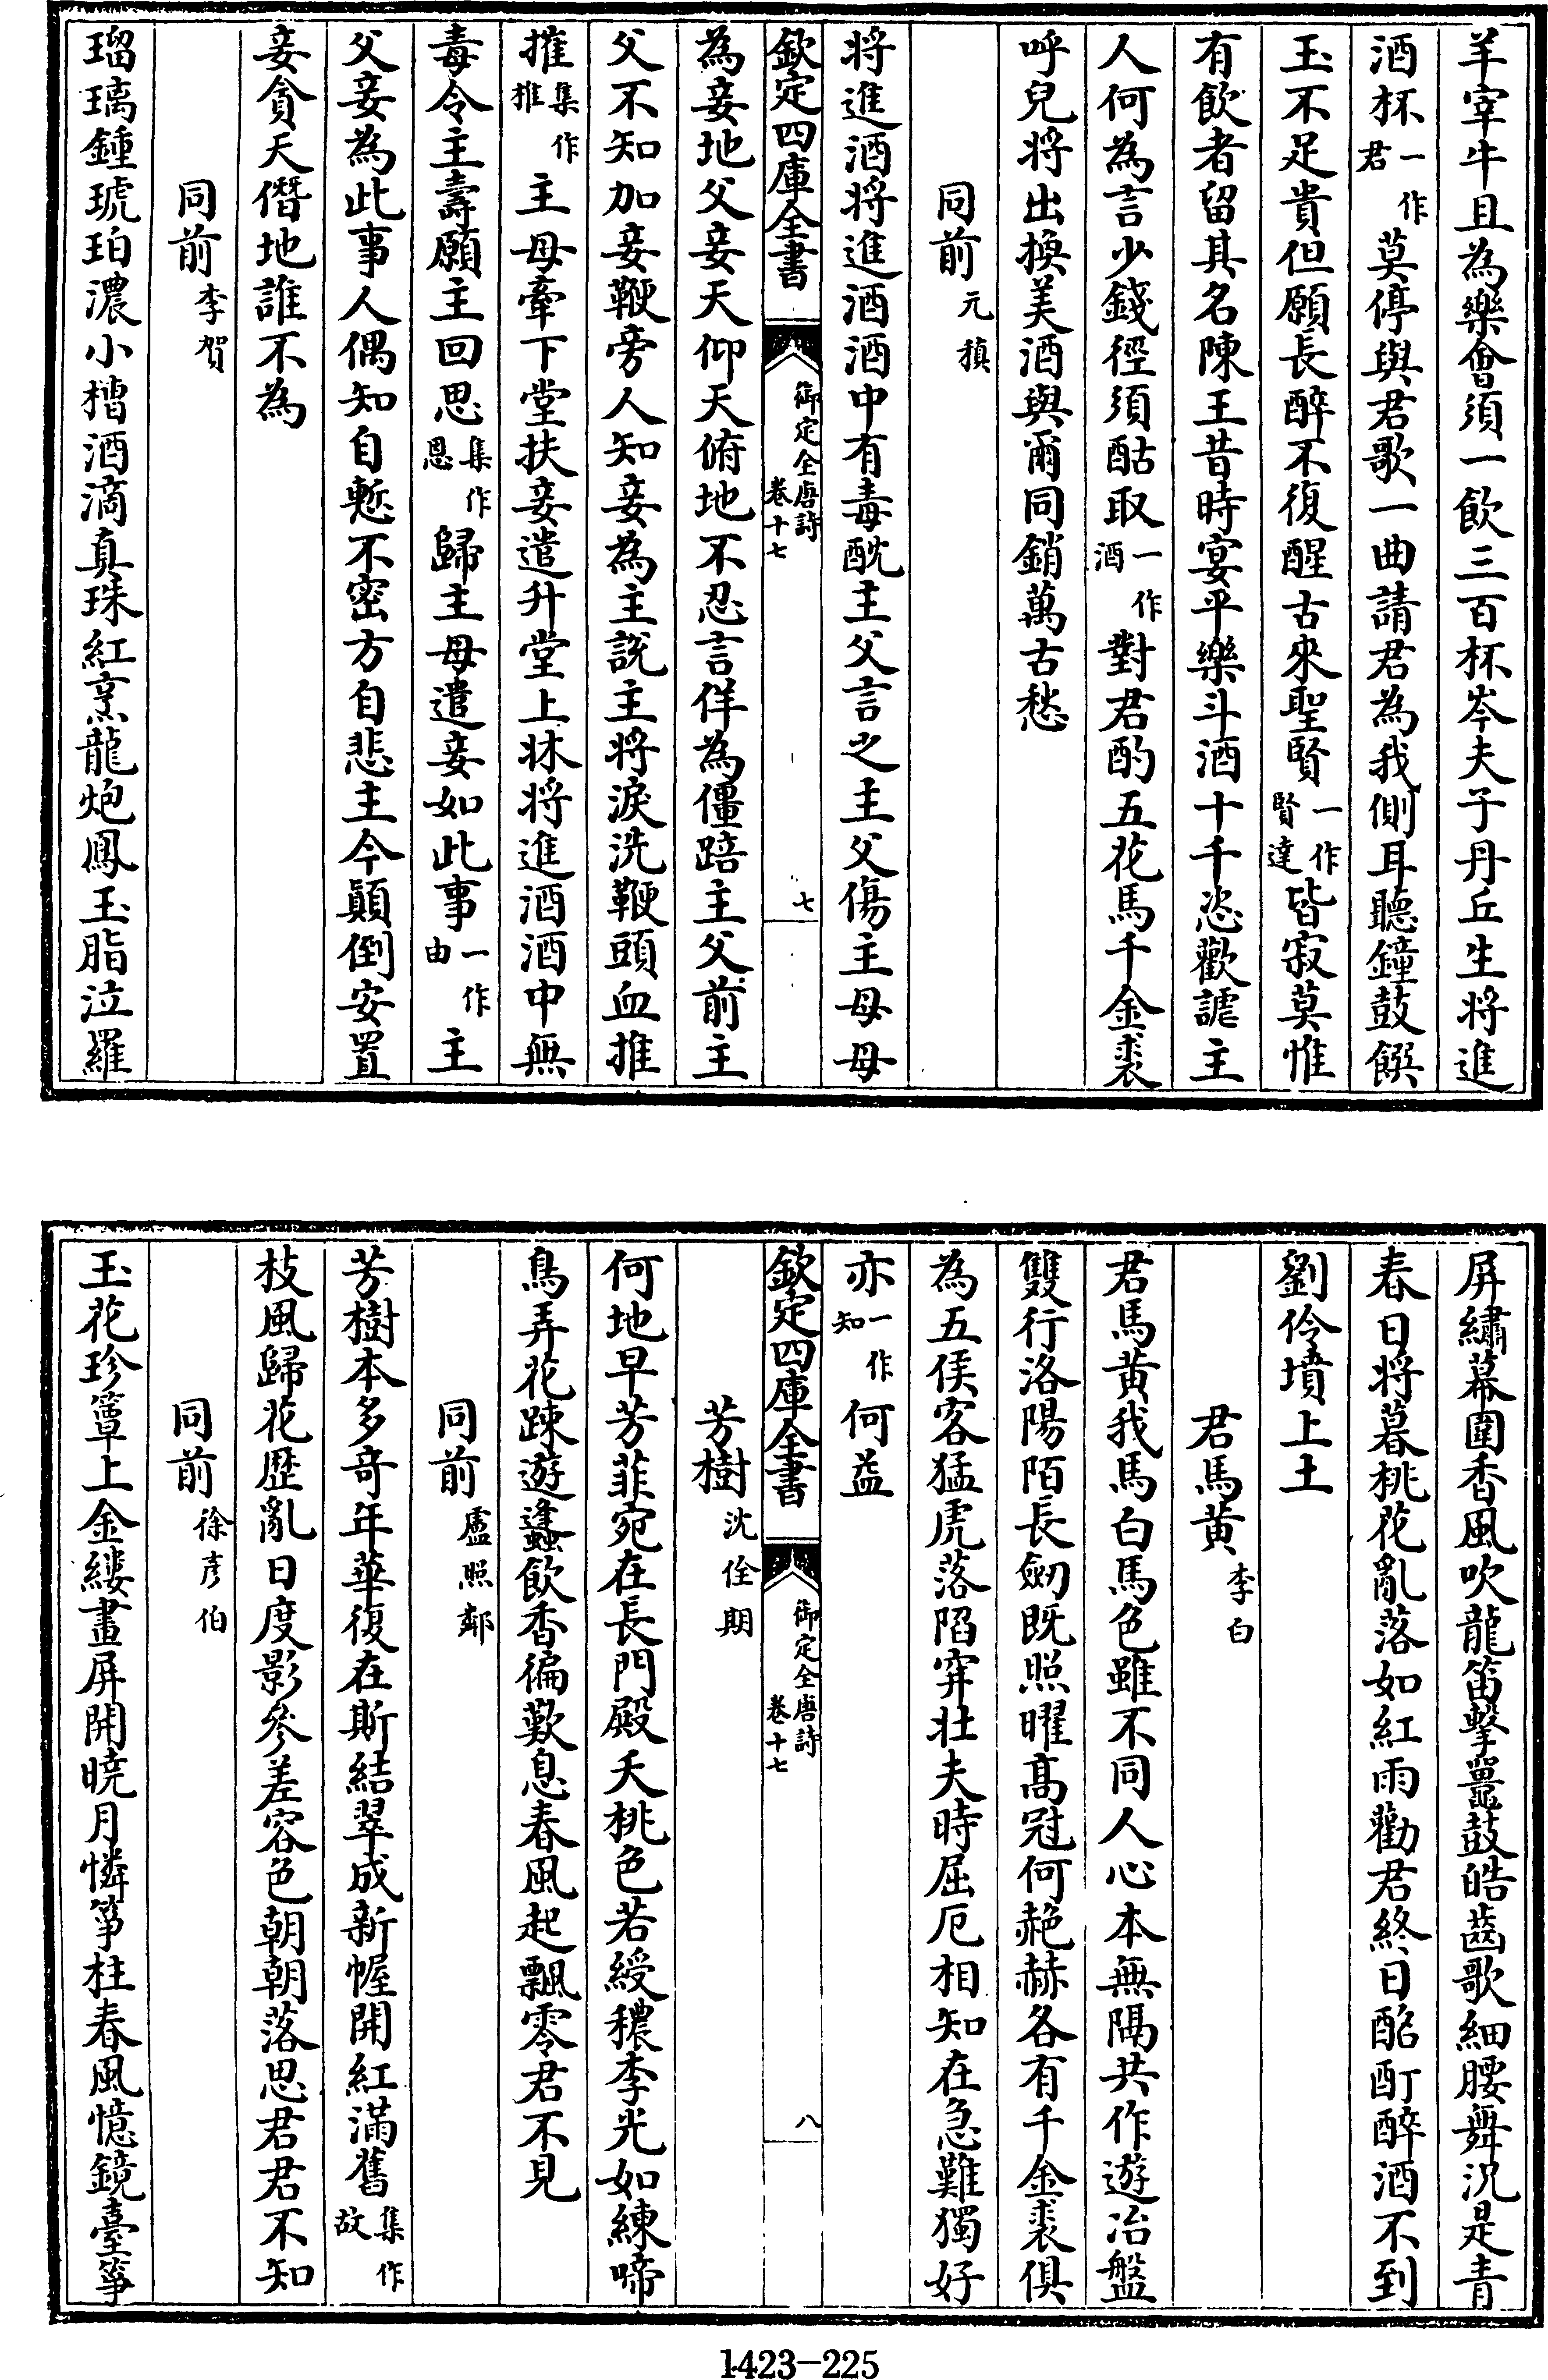 羊宰牛且為樂會須一飲三百杯岑夫子丹丘生将進
酒杯一作君莫停與君歌一曲請君為我側耳聽鐘鼓饌
玉不足貴但願長醉不復醒古來聖賢一作賢達皆寂莫惟
有飲者留其名陳王昔時宴平樂斗酒十千恣歡謔主
人何為言少錢徑須酤取一作酒對君酌五花馬千金裘
呼兒将出換美酒與爾同銷萬古愁
同前元稹
将進酒将進酒酒中有毒酖主父言之主父傷主母母
欽定四庫全書
御定全唐詩
卷十七
七
為妾地父妾天仰天俯地不忍言佯為僵踣主父前主
父不知加妾鞭旁人知妾為主說主将淚洗鞭頭血推
摧集作椎主母牽下堂扶妾遣升堂上牀将進酒酒中無
毒令主壽願主回思集作恩歸主母遣妾如此事一作由主
父妾為此事人偶知自慙不密方自悲主今顛倒安置
妾貪天僭地誰不為
同前李賀
瑠璃鍾琥珀濃小槽酒滴真珠紅烹龍炮鳳玉脂泣羅
屏繡幕圍香風吹龍笛擊鼉鼓皓齒歌細腰舞況是青
春日将暮桃花亂落如紅雨勸君終日酩酊醉酒不到
劉伶墳上土
君馬黄李白
君馬黄我馬白馬色雖不同人心本無隔共作遊冶盤
雙行洛陽陌長劒既照曜髙冠何赩赫各有千金裘俱
為五侯客猛虎落陷穽壮夫時屈厄相知在急難獨好
亦一作知何益
欽定四庫全書
御定全唐詩
卷十七
八
芳樹沈佺期
何地早芳菲宛在長門殿夭桃色若綬穠李光如練啼
鳥弄花踈遊蠭飲香徧歎息春風起飄零君不見
同前盧照鄰
芳樹本多奇年華復在斯結翠成新幄開紅滿舊集作故
枝風歸花歴亂日度影參差容色朝朝落思君君不知
同前徐彦伯
玉花珍簟上金縷畫屏開曉月憐筝柱春風憶鏡臺筝
1423—225